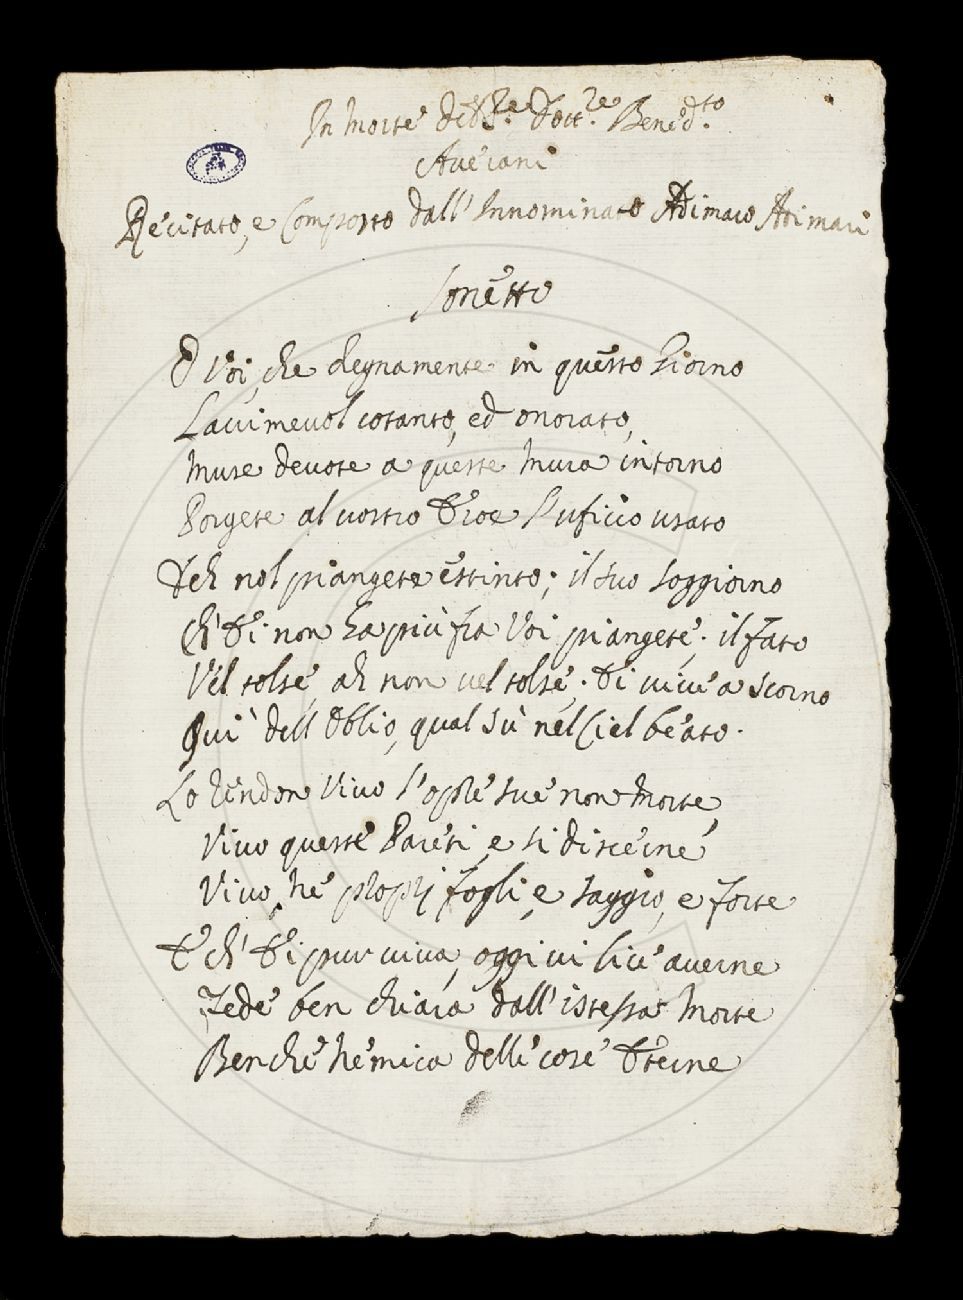 In Morte del S.re Dott.re Bened.to
Averani
Recitato, e Composto dall' Innominato Adimaro Adimari
Sonetto
O Voi, che degnamente in questo Giorno
Lacrimevol cotanto, ed onorato,
Muse devote a queste Mura intorno
Porgete al vostro Eroe l'uficio usato
Deh nol piangete estinto; il suo soggiorno
Ch' Ei non ha più fra Voi piangete; il Fato
Vel tolse, ah non vel tolse; Ei vive a scorno
Qui dell' Oblio, qual sù nel Ciel beato.
Lo rendon Vivo l'opre sue non morte,
Vivo queste Pareti, e si discerne
Vivo ne' proprj fogli, e saggio, e forte
E ch' Ei pur viva, oggi vi lice averne
Fede ben chiara dall' istessa Morte
Benche Nemica delle cose Eterne